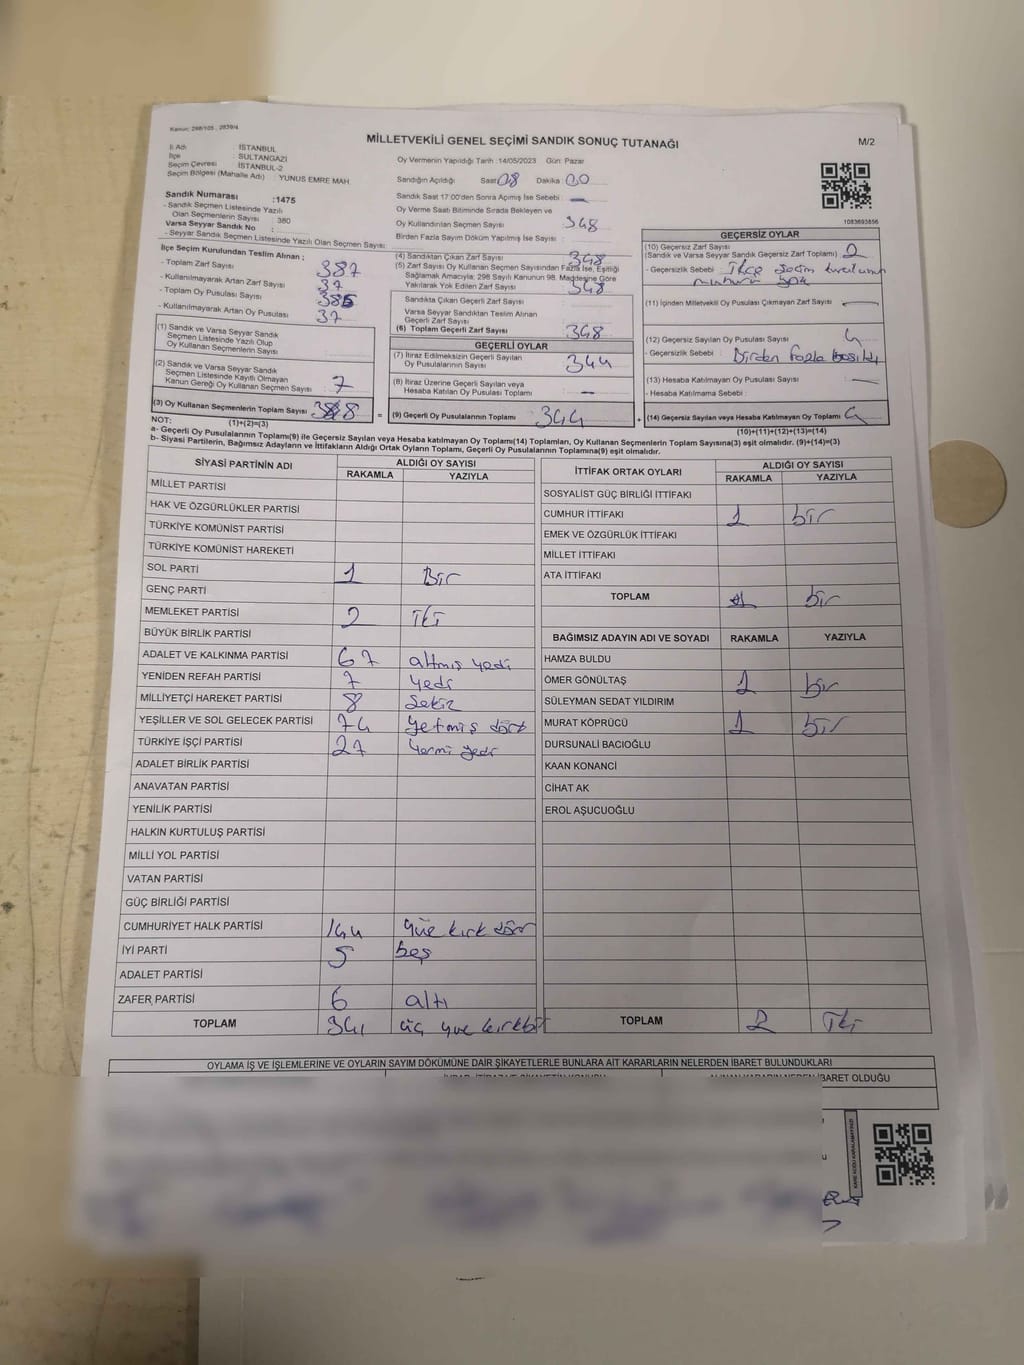 Kanun: 298/105, 2839/4
MİLLETVEKİLİ GENEL SEÇİMİ SANDIK SONUÇ TUTANAĞI
M/2
İl Adı : İSTANBUL
İlçe : SULTANGAZİ
Seçim Çevresi : İSTANBUL-2
Seçim Bölgesi (Mahalle Adı) : YUNUS EMRE MAH.
Sandık Numarası :1475
- Sandık Seçmen Listesinde Yazılı
Olan Seçmenlerin Sayısı : 380
Varsa Seyyar Sandık No :
- Seyyar Sandık Seçmen Listesinde Yazılı Olan Seçmen Sayısı:
Oy Vermenin Yapıldığı Tarih :14/05/2023 Gün: Pazar
Sandığın Açıldığı Saat 08 Dakika 00
Sandık Saat 17:00'den Sonra Açılmış İse Sebebi : —
Oy Verme Saati Bitiminde Sırada Bekleyen ve
Oy Kullandırılan Seçmen Sayısı : 348
Birden Fazla Sayım Döküm Yapılmış İse Sayısı :
1083693856
İlçe Seçim Kurulundan Teslim Alınan ;
- Toplam Zarf Sayısı : 387
- Kullanılmayarak Artan Zarf Sayısı : 37
- Toplam Oy Pusulası Sayısı : 385
- Kullanılmayarak Artan Oy Pusulası : 37
(1) Sandık ve Varsa Seyyar Sandık
Seçmen Listesinde Yazılı Olup
Oy Kullanan Seçmenlerin Sayısı :
(2) Sandık ve Varsa Seyyar Sandık
Seçmen Listesinde Kayıtlı Olmayan
Kanun Gereği Oy Kullanan Seçmen Sayısı : 7
(3) Oy Kullanan Seçmenlerin Toplam Sayısı : 348
(1)+(2)=(3)
(4) Sandıktan Çıkan Zarf Sayısı : 348
(5) Zarf Sayısı Oy Kullanan Seçmen Sayısından Fazla İse, Eşitliği
Sağlamak Amacıyla; 298 Sayılı Kanunun 98. Maddesine Göre
Yakılarak Yok Edilen Zarf Sayısı : 348
Sandıkta Çıkan Geçerli Zarf Sayısı :
Varsa Seyyar Sandıktan Teslim Alınan
Geçerli Zarf Sayısı :
(6) Toplam Geçerli Zarf Sayısı : 348
GEÇERLİ OYLAR
(7) İtiraz Edilmeksizin Geçerli Sayılan
Oy Pusulalarının Sayısı : 344
(8) İtiraz Üzerine Geçerli Sayılan veya
Hesaba Katılan Oy Pusulası Toplamı : —
= (9) Geçerli Oy Pusulalarının Toplamı : 344
GEÇERSİZ OYLAR
(10) Geçersiz Zarf Sayısı
(Sandık ve Varsa Seyyar Sandık Geçersiz Zarf Toplamı) : 2
- Geçersizlik Sebebi : İlçe seçim kurulunun
mührü yok
(11) İçinden Milletvekili Oy Pusulası Çıkmayan Zarf Sayısı : —
(12) Geçersiz Sayılan Oy Pusulası Sayısı : 4
- Geçersizlik Sebebi : Birden fazla basıldı
(13) Hesaba Katılmayan Oy Pusulası Sayısı : —
- Hesaba Katılmama Sebebi :
+ (14) Geçersiz Sayılan veya Hesaba Katılmayan Oy Toplamı : 4
(10)+(11)+(12)+(13)=(14)
NOT:
a- Geçerli Oy Pusulalarının Toplamı(9) ile Geçersiz Sayılan veya Hesaba katılmayan Oy Toplamı(14) Toplamları, Oy Kullanan Seçmenlerin Toplam Sayısına(3) eşit olmalıdır. (9)+(14)=(3)
b- Siyasi Partilerin, Bağımsız Adayların ve İttifakların Aldığı Ortak Oyların Toplamı, Geçerli Oy Pusulalarının Toplamına(9) eşit olmalıdır.
SİYASİ PARTİNİN ADI ALDIĞI OY SAYISI
RAKAMLA YAZIYLA
MİLLET PARTİSİ
HAK VE ÖZGÜRLÜKLER PARTİSİ
TÜRKİYE KOMÜNİST PARTİSİ
TÜRKİYE KOMÜNİST HAREKETİ
SOL PARTİ 1 Bir
GENÇ PARTİ
MEMLEKET PARTİSİ 2 İki
BÜYÜK BİRLİK PARTİSİ
ADALET VE KALKINMA PARTİSİ 67 altmış yedi
YENİDEN REFAH PARTİSİ 7 yedi
MİLLİYETÇİ HAREKET PARTİSİ 8 sekiz
YEŞİLLER VE SOL GELECEK PARTİSİ 74 yetmiş dört
TÜRKİYE İŞÇİ PARTİSİ 27 yirmi yedi
ADALET BİRLİK PARTİSİ
ANAVATAN PARTİSİ
YENİLİK PARTİSİ
HALKIN KURTULUŞ PARTİSİ
MİLLİ YOL PARTİSİ
VATAN PARTİSİ
GÜÇ BİRLİĞİ PARTİSİ
CUMHURİYET HALK PARTİSİ 144 yüz kırk dör
İYİ PARTİ 5 beş
ADALET PARTİSİ
ZAFER PARTİSİ 6 altı
TOPLAM 341 üç yüz kırkbir
İTTİFAK ORTAK OYLARI ALDIĞI OY SAYISI
RAKAMLA YAZIYLA
SOSYALİST GÜÇ BİRLİĞİ İTTİFAKI
CUMHUR İTTİFAKI 1 bir
EMEK VE ÖZGÜRLÜK İTTİFAKI
MİLLET İTTİFAKI
ATA İTTİFAKI
TOPLAM 1 bir
BAĞIMSIZ ADAYIN ADI VE SOYADI RAKAMLA YAZIYLA
HAMZA BULDU
ÖMER GÖNÜLTAŞ 1 bir
SÜLEYMAN SEDAT YILDIRIM
MURAT KÖPRÜCÜ 1 bir
DURSUNALİ BACIOĞLU
KAAN KONANCİ
CİHAT AK
EROL AŞUCUOĞLU
TOPLAM 2 İki
OYLAMA İŞ VE İŞLEMLERİNE VE OYLARIN SAYIM DÖKÜMÜNE DAİR ŞİKAYETLERLE BUNLARA AİT KARARLARIN NELERDEN İBARET BULUNDUKLARI
İBARET OLDUĞU
KARE KODU KARALAMAYINIZ!